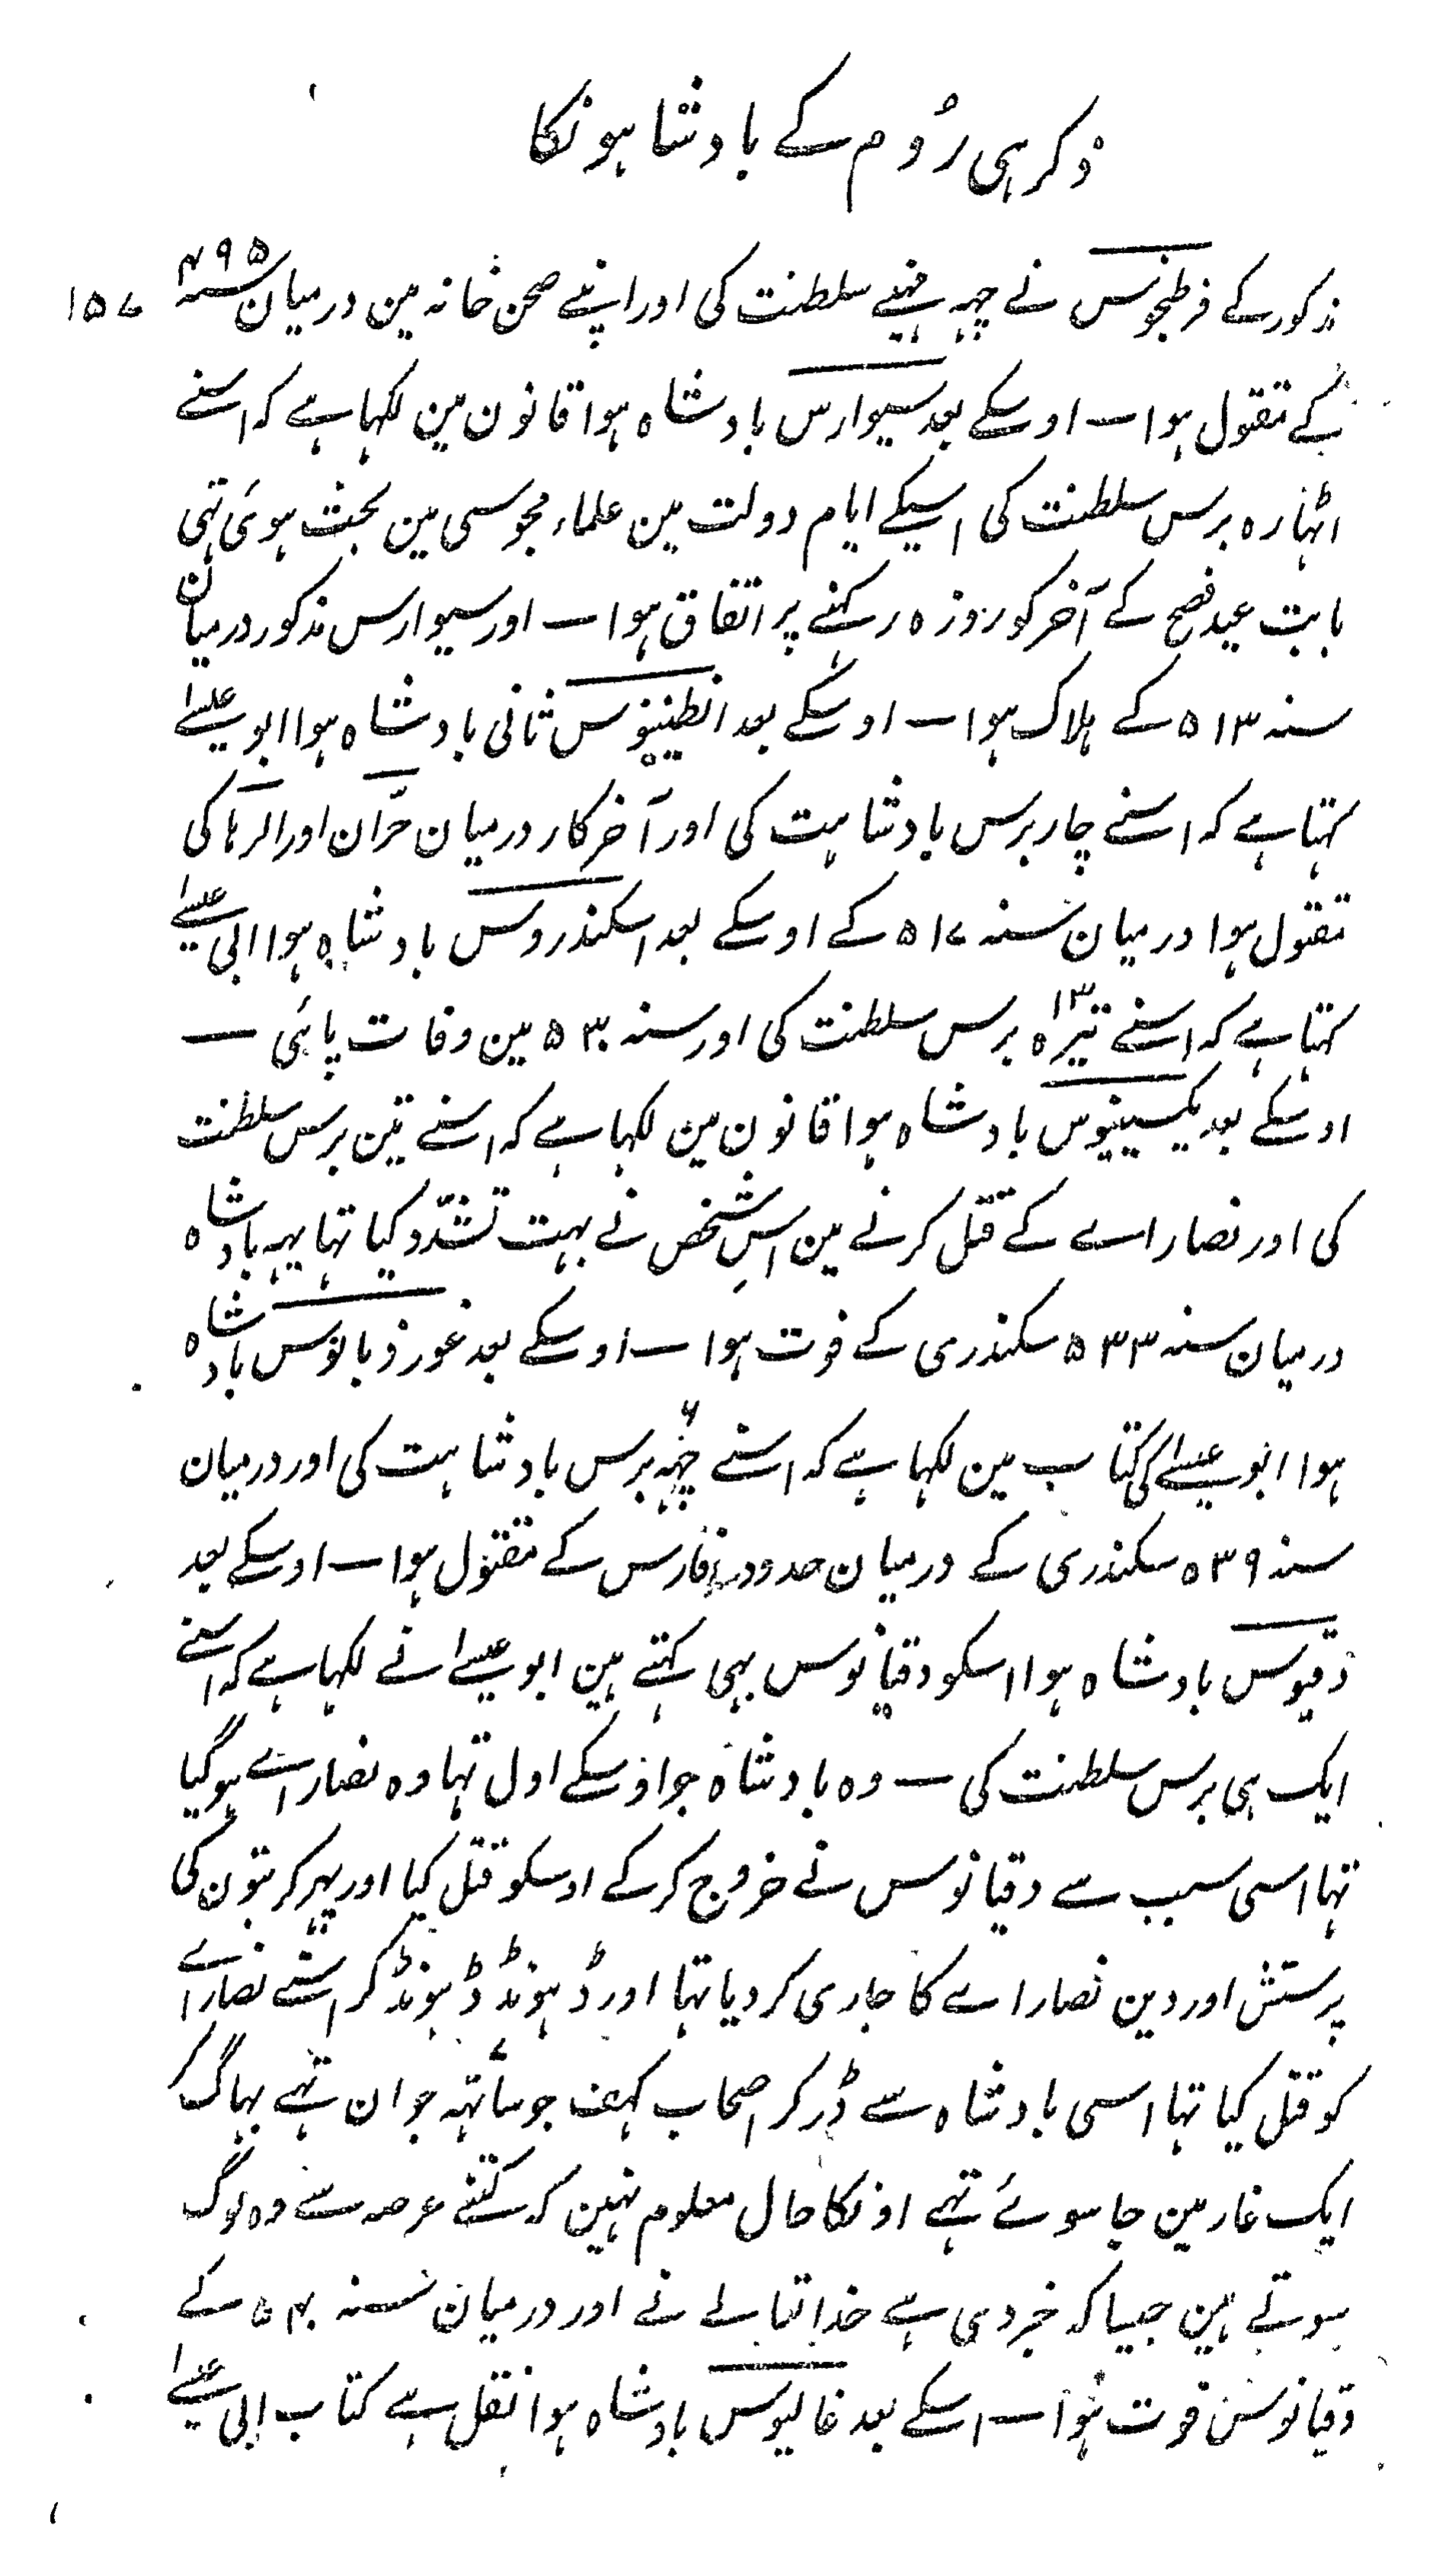 ذکر ہی رُوم کے بادشاہونکا
۱۵۷
مذکور کے فرطنجوس نے چہہ مہنیے سلطنت کی اور اپنے صحن خانہ مین درمیان سنہ ۴۹۵
کے مقتول ہوا ــ اوسکے بعد سیوارس بادشاہ ہوا قانون مین لکہا ہے کہ اسنے
اٹہارہ برس سلطنت کی اسیکے ایام دولت مین علماء مجوسی مین بحث ہوئی تہی
بابت عید فصح کے آخر کو روزہ رکہنے پر اتفاق ہوا ــ اور سیوارس مذکور درمیان
سنہ ۵۱۳ کے ہلاک ہوا ــ اوسکے بعد انطینیوس ثانی بادشاہ ہوا ابو عیسے
کہتا ہے کہ اسنے چار برس بادشاہت کی اور آخر کار درمیان حرّان اور الرہا کی
مقتول ہوا درمیان سنہ ۵۱۷ کے اوسکے بعد اسکندروس بادشاہ ہوا ابی عیسے
کہتا ہے کہ اسنے تیرہ ۱۳ برس سلطنت کی اور سنہ ۵۳۰ مین وفات پائی ــ
اوسکے بعد یکسیمینوس بادشاہ ہوا قانون مین لکہا ہے کہ اسنے تین برس سلطنت
کی اور نصارٰے کے قتل کرنے مین اسِ شخص نے بہت تشدّد کیا تہا یہہ بادشاہ
درمیان سنہ ۵۳۳ سکندری کے فوت ہوا ــ اوسکے بعد غورذیانوس بادشاہ
ہوا ابو عیسے کی کتاب مین لکہا ہے کہ اسنے چہہ ۶ برس بادشاہت کی اور درمیان
سنہ ۵۳۹ سکندری کے درمیان حدود فارس کے مقتول ہوا ــ اوسکے بعد
دقیوس بادشاہ ہوا اسکو دقیانوس بہی کہتے ہین ابو عیسے نے لکہا ہے کہ اسنے
ایک ہی برس سلطنت کی ــ وہ بادشاہ جو اوسکے اول تہا وہ نصارٰے ہوگیا
تہا اسی سبب سے دقیانوس نے خروج کرکے اوسکو قتل کیا اور پہر کر بتون کی
پرستش اور دین نصارٰے کا جاری کر دیا تہا اور ڈہونڈ ڈہونڈ کر اسنے نصارٰے
کو قتل کیا تہا اسی بادشاہ سے ڈر کر اصحاب کہف جو ساتہہ ۷ جوان تہے بہاگ کر
ایک غار مین جا سوئے تہے اونکا حال معلوم نہین کہ کتنے عرصہ سے وہ لوگ
سوتے ہین جیسا کہ خبر دی ہے خدا تعالے نے اور درمیان سنہ ۵۴۰ کے
دقیانوس فوت ہوا ــ اسکے بعد غالیوس بادشاہ ہوا نقل ہے کتاب ابی عیسے